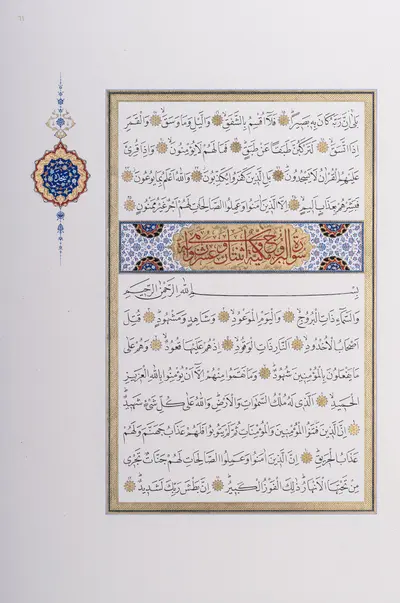 ٦١
بَلٰٓى اِنَّ رَبَّهُ كَانَ بِهٖ بَصٖيرًا فَلَٓا اُقْسِمُ بِالشَّفَقِ وَالَّيْلِ وَمَا وَسَقَ وَالْقَمَرِ
اِذَا اتَّسَقَ لَتَرْكَبُنَّ طَبَقًا عَنْ طَبَقٍ فَمَا لَهُمْ لَا يُؤْمِنُونَ وَاِذَا قُرِئَ
عَلَيْهِمُ الْقُرْاٰنُ لَا يَسْجُدُونَ بَلِ الَّذٖينَ كَفَرُوا يُكَذِّبُونَ وَاللّٰهُ اَعْلَمُ بِمَا يُوعُونَ
فَبَشِّرْهُمْ بِعَذَابٍ اَلٖيمٍ اِلَّا الَّذٖينَ اٰمَنُوا وَعَمِلُوا الصَّالِحَاتِ لَهُمْ اَجْرٌ غَيْرُ مَمْنُونٍ
سورة البروج مكية اثنتان وعشرون اية
بِسْمِ اللّٰهِ الرَّحْمٰنِ الرَّحٖيمِ
وَالسَّمَٓاءِ ذَاتِ الْبُرُوجِ وَالْيَوْمِ الْمَوْعُودِ وَشَاهِدٍ وَمَشْهُودٍ قُتِلَ
اَصْحَابُ الْاُخْدُودِ اَلنَّارِ ذَاتِ الْوَقُودِ اِذْ هُمْ عَلَيْهَا قُعُودٌ وَهُمْ عَلٰى
مَا يَفْعَلُونَ بِالْمُؤْمِنٖينَ شُهُودٌ وَمَا نَقَمُوا مِنْهُمْ اِلَّٓا اَنْ يُؤْمِنُوا بِاللّٰهِ الْعَزٖيزِ
الْحَمٖيدِ اَلَّذٖي لَهُ مُلْكُ السَّمٰوَاتِ وَالْاَرْضِ وَاللّٰهُ عَلٰى كُلِّ شَيْءٍ شَهٖيدٌ
اِنَّ الَّذٖينَ فَتَنُوا الْمُؤْمِنٖينَ وَالْمُؤْمِنَاتِ ثُمَّ لَمْ يَتُوبُوا فَلَهُمْ عَذَابُ جَهَنَّمَ وَلَهُمْ
عَذَابُ الْحَرٖيقِ اِنَّ الَّذٖينَ اٰمَنُوا وَعَمِلُوا الصَّالِحَاتِ لَهُمْ جَنَّاتٌ تَجْرٖي
مِنْ تَحْتِهَا الْاَنْهَارُ ذٰلِكَ الْفَوْزُ الْكَبٖيرُ اِنَّ بَطْشَ رَبِّكَ لَشَدٖيدٌ